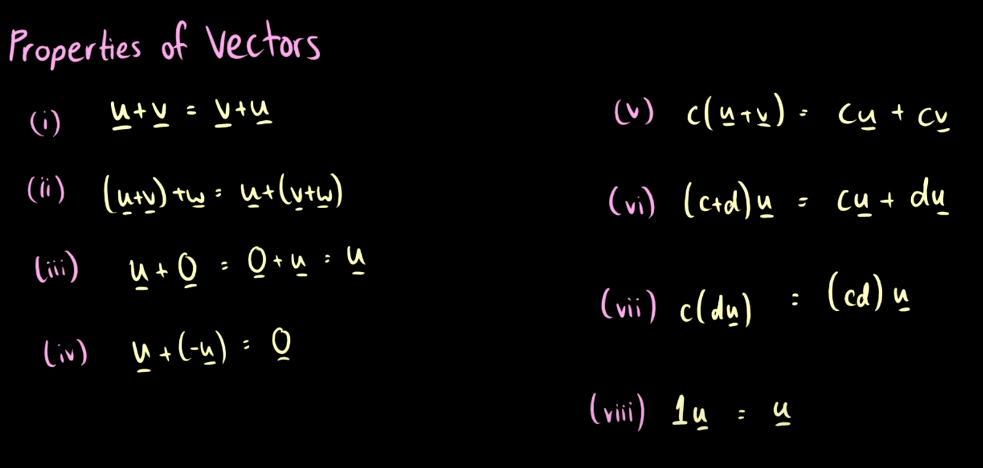 Properties of Vectors
(i) u̲ + v̲ = v̲ + u̲
(ii) (u̲+v̲) + w̲ = u̲ + (v̲+w̲)
(iii) u̲ + 0̲ = 0̲ + u̲ = u̲
(iv) u̲ + (-u̲) = 0̲
(v) c(u̲+v̲) = cu̲ + cv̲
(vi) (c+d)u̲ = cu̲ + du̲
(vii) c(du̲) = (cd)u̲
(viii) 1u̲ = u̲